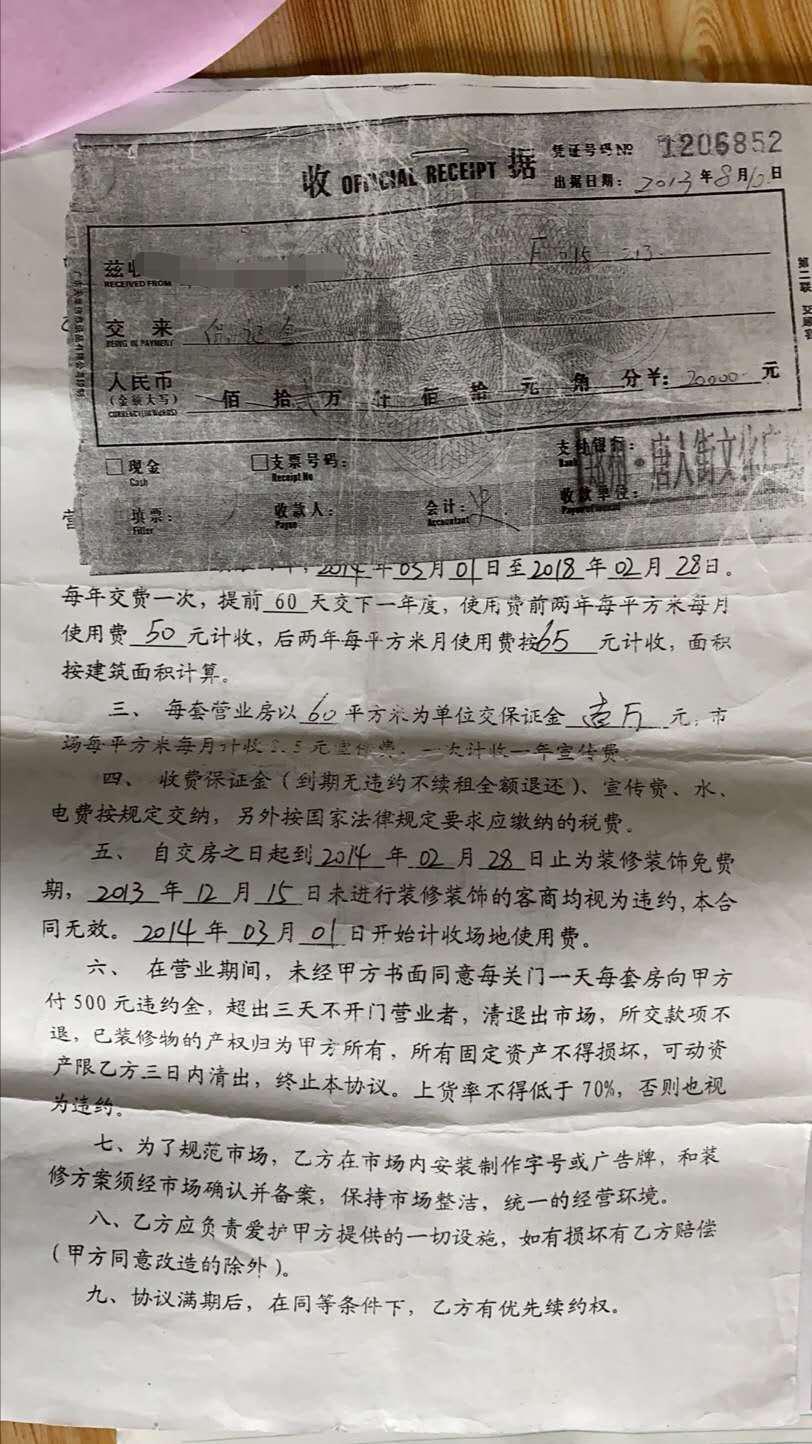 收 OFFICIAL RECEIPT 据
凭证号码№ 1206852
出据日期：2013年8月10日
兹收
RECEIVED FROM
交来 保证金
BEING IN PAYMENT
人民币 佰 拾 贰 万 仟 佰 拾 元 角 分 ¥：20000 元
（金额大写）
CURRENCY(IN WORDS)
第二联
□现金 □支票号码： 支付银行：
Cash Receipt No Bank
郑州·唐人街文化广
填票： 收款人： 会计：史 收款单位：
Filler Payee Accountant
2014年03月01日至2018年02月28日。
每年交费一次，提前60天交下一年度，使用费前两年每平方米每月
使用费50元计收，后两年每平方米月使用费按65元计收，面积
按建筑面积计算。
三、每套营业房以60平方米为单位交保证金壹万元，市
场每平方米每月计收2.5元宣传费，一次计收一年宣传费。
四、收费保证金（到期无违约不续租全额退还）、宣传费、水、
电费按规定交纳，另外按国家法律规定要求应缴纳的税费。
五、自交房之日起到2014年02月28日止为装修装饰免费
期，2013年12月15日未进行装修装饰的客商均视为违约，本合
同无效。2014年03月01日开始计收场地使用费。
六、在营业期间，未经甲方书面同意每关门一天每套房向甲方
付500元违约金，超出三天不开门营业者，清退出市场，所交款项不
退，已装修物的产权归为甲方所有，所有固定资产不得损坏，可动资
产限乙方三日内清出，终止本协议。上货率不得低于70%，否则也视
为违约。
七、为了规范市场，乙方在市场内安装制作字号或广告牌，和装
修方案须经市场确认并备案，保持市场整洁，统一的经营环境。
八、乙方应负责爱护甲方提供的一切设施，如有损坏有乙方赔偿
（甲方同意改造的除外）。
九、协议满期后，在同等条件下，乙方有优先续约权。